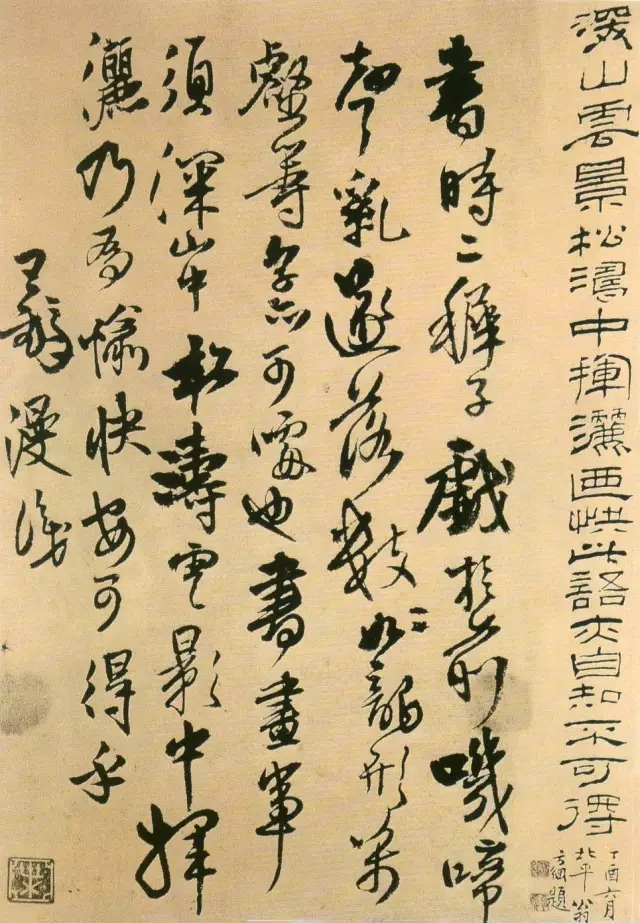 深山雲景松濤中揮灑迺快此語亦自知不可得
丁酉六月
北平翁
方綱題
書時二稚子戲於前嘰啼
聲亂遂落數如龍形萬
壑等字亦可噱也書畫事
須深山中松濤雲影中揮
灑乃為愉快安可得乎
王鐸漫識